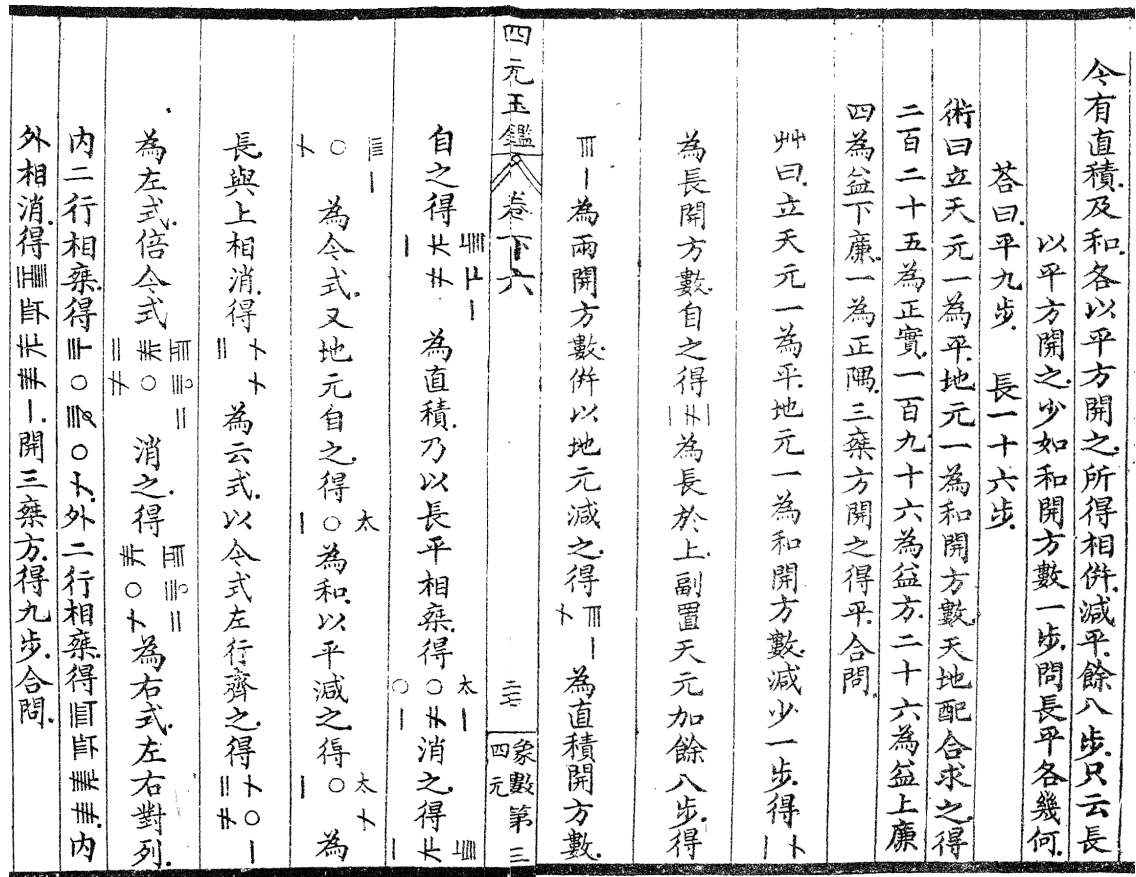 今有直積及和各以平方開之所得相併減平餘八步只云長
以平方開之少如和開方數一步問長平各幾何
荅曰平九步 長一十六步
術曰立天元一為平地元一為和開方數天地配合求之得
二百二十五為正實一百九十六為益方二十六為益上廉
四為益下廉一為正隅三乗方開之得平合問
艸曰立天元一為平地元一為和開方數減少一步得
為長開方數自之得 為長於上副置天元加餘八步得
為兩開方數併以地元減之得 為直積開方數
四元玉鑑 卷下六 象數第三 四元
自之得 為直積乃以長平相乗得 太 消之得
為今式又地元自之得 太 為和以平減之得 太 為
長與上相消得 為云式以今式左行齊之得
為左式倍今式 消之得 為右式左右對列
内二行相乗得 外二行相乗得 内
外相消得 開三乗方得九步合問